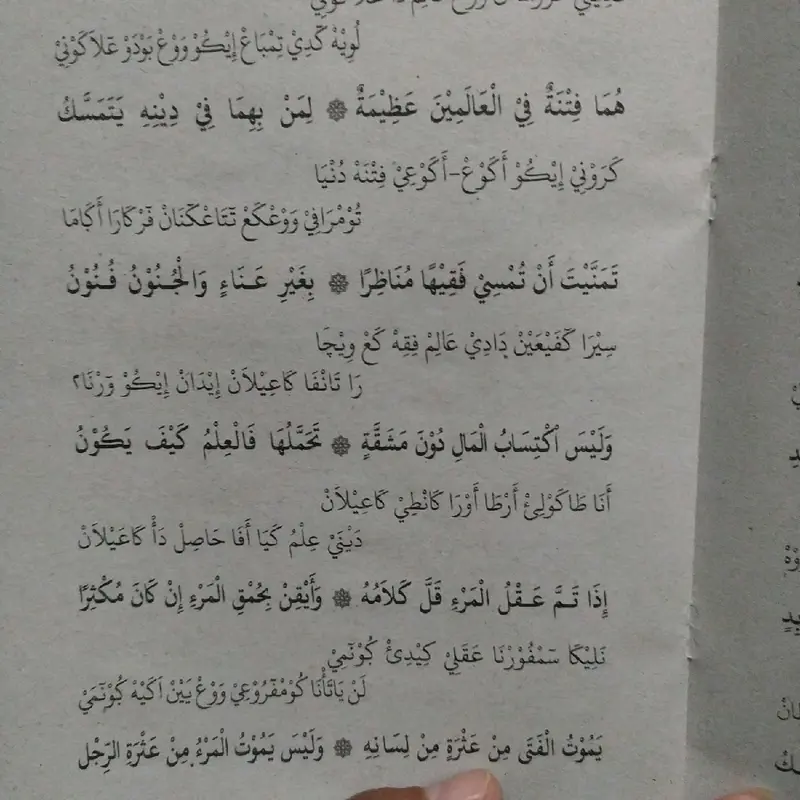 لَوِيْهْ كَدَيْ تِمْبَاغْ إِيْكُوْ وَوْغْ بَوْدَوْ عَلاَكَوْنِيْ
هُمَا فِتْنَةٌ فِيْ الْعَالَمِيْنَ عَظِيْمَةٌ ۞ لِمَنْ بِهِمَا فِيْ دِيْنِهِ يَتَمَسَّكُ
كَرَوْنِيْ إِيْكُوْ أَكَوْغْ-أَكَوْعِيْ فِتْنَهْ دُنْيَا
تُوْمْرَافِيْ وَوْغْكَعْ تَتَاعْكَنَانْ فَرْكَارَا أَكَامَا
تَمَنَّيْتَ أَنْ تُمْسِيْ فَقِيْهًا مُنَاظِرًا ۞ بِغَيْرِ عَنَاءٍ وَالْجُنُوْنُ فُنُوْنُ
سِيْرَا كَفَيْعَيْنْ دَادِيْ عَالِمْ فِقِهْ كَعْ وِيْچَا
رَا تَانْفَا كَاعِيْلاَنْ إِيْدَانْ إِيْكُوْ وَرْنَا٢
وَلَيْسَ اكْتِسَابُ الْمَالِ دُوْنَ مَشَقَّةٍ ۞ تَحَمَّلُهَا فَالْعِلْمُ كَيْفَ يَكُوْنُ
أَنَا طَاكَوْلِئْ أَرْطَا أَوْرَا كَانْطِيْ كَاعِيْلاَنْ
دَيْنَيْ عِلْمُ كَيَا أَفَا حَاصِلْ دَأْ كَاعَيْلاَنْ
إِذَا تَمَّ عَقْلُ الْمَرْءِ قَلَّ كَلاَمُهُ ۞ وَأَيْقِنْ بِحُمْقِ الْمَرْءِ إِنْ كَانَ مُكْثِرًا
نَلِيْكَا سَمْفُوْرْنَا عَقَلِيْ كِيْدِئْ كُوْنَمِيْ
لَنْ يَاتَأْنَا كُوْمْفْرُوْعِيْ وَوْغْ يَيْنْ اَكَيْهْ كُوْنَمَيْ
يَمُوْتُ الْفَتَى مِنْ عَثْرَةٍ مِنْ لِسَانِهِ ۞ وَلَيْسَ يَمُوْتُ الْمَرْءُ مِنْ عَثْرَةِ الرِّجْلِ